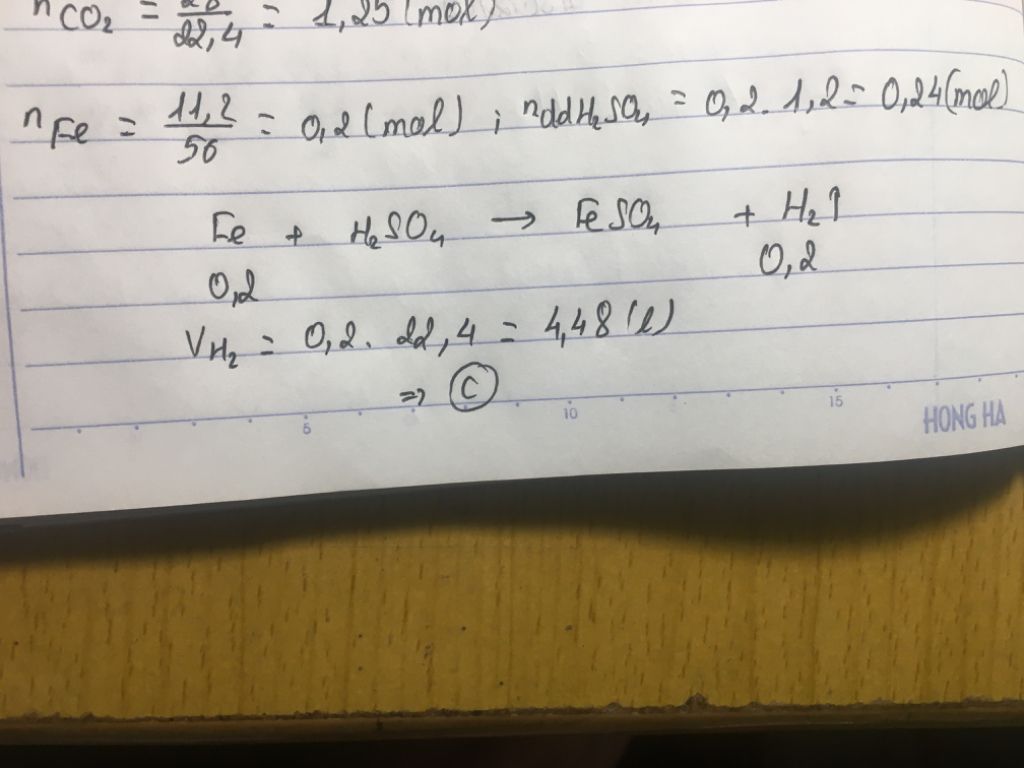 nCO₂ = 28/22,4 = 1,25 (mol)
nFe = 11,2/56 = 0,2 (mol) ; nddH₂SO₄ = 0,2. 1,2 = 0,24 (mol)
Fe + H₂SO₄ → FeSO₄ + H₂↑
0,2 0,2
VH₂ = 0,2. 22,4 = 4,48 (l)
=> C
5 10 15 HONG HA